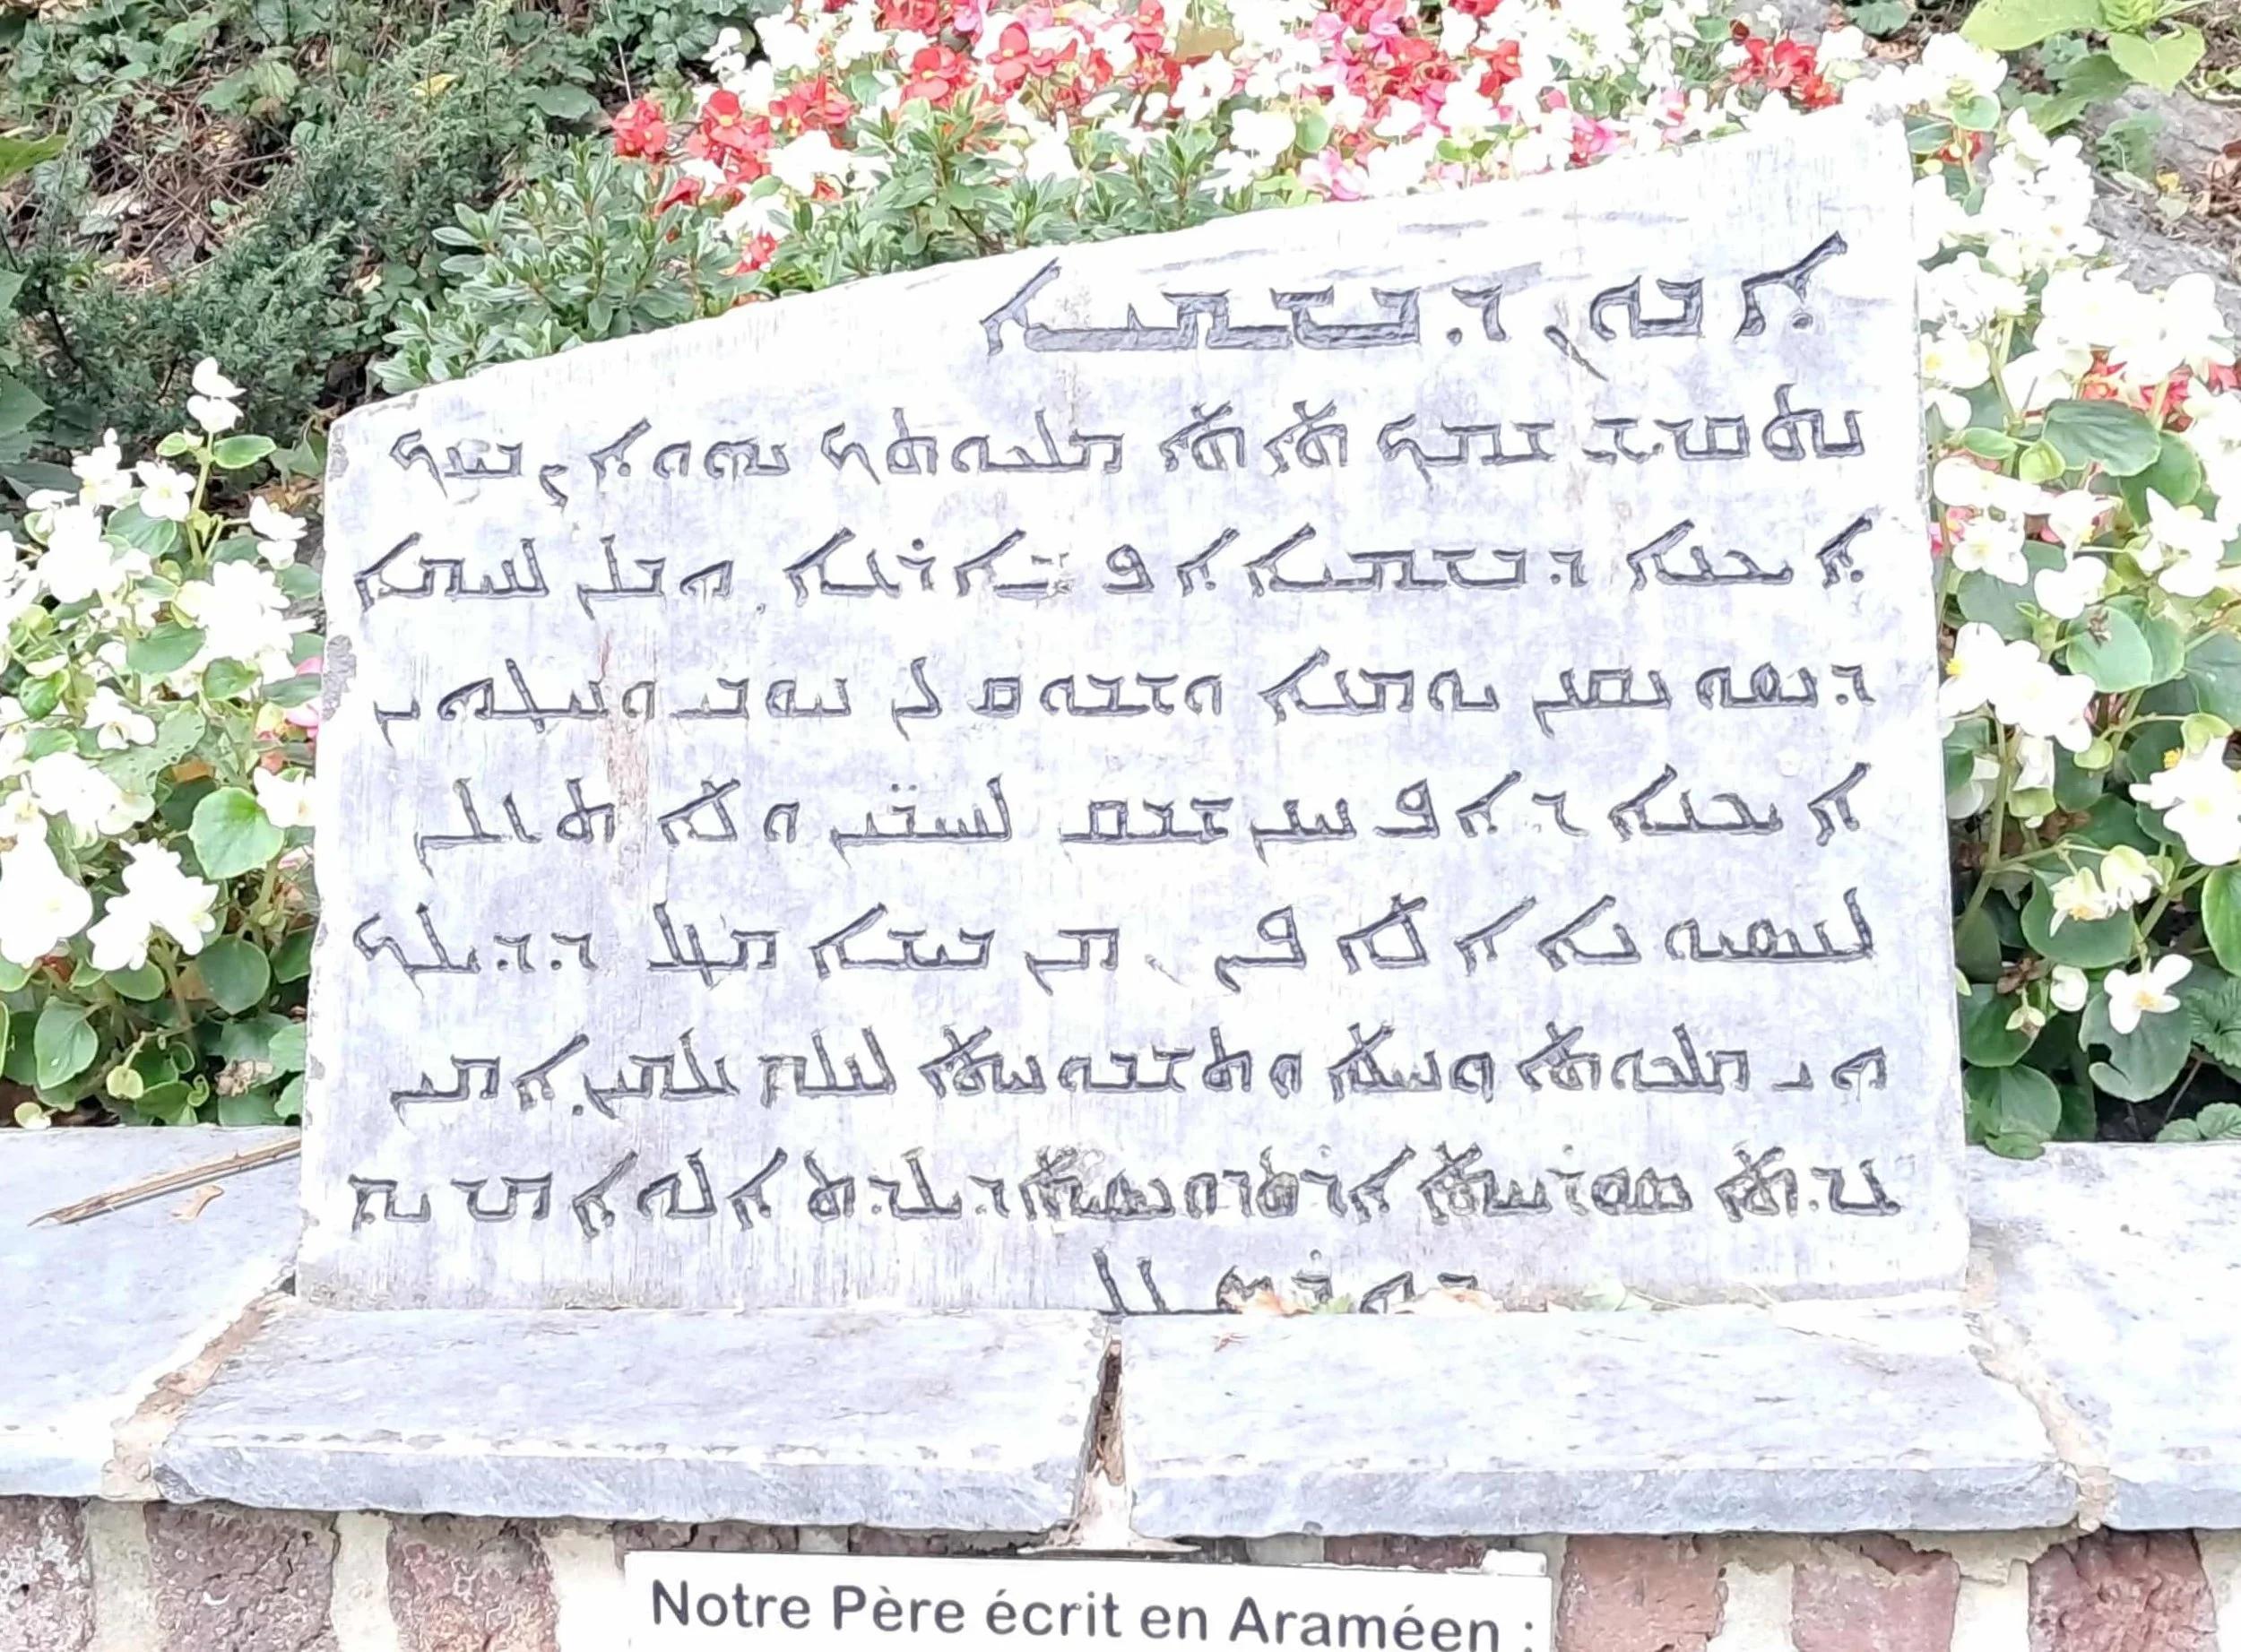 ܐܒܘܢ ܕܒܫܡܝܐ
ܢܬܩܕܫ ܫܡܟ ܬܐܬܐ ܡܠܟܘܬܟ ܢܗܘܐ ܨܒܝܢܟ
ܐܝܟܢܐ ܕܒܫܡܝܐ ܐܦ ܒܐܪܥܐ ܗܒ ܠܢ ܠܚܡܐ
ܕܣܘܢܩܢܢ ܝܘܡܢܐ ܘܫܒܘܩ ܠܢ ܚܘܒܝܢ ܘܚܛܗܝܢ
ܐܝܟܢܐ ܕܐܦ ܚܢܢ ܫܒܩܢ ܠܚܝ̈ܒܝܢ ܘܠܐ ܬܥܠܢ
ܠܢܣܝܘܢܐ ܐܠܐ ܦܨܢ ܡܢ ܒܝܫܐ ܡܛܠ ܕܕܝܠܟ
ܗܝ ܡܠܟܘܬܐ ܘܚܝܠܐ ܘܬܫܒܘܚܬܐ ܠܥܠܡ ܥܠܡܝܢ ܐܡܝܢ
ܥܕܬܐ ܣܘܪܝܝܬܐ
Notre Père écrit en Araméen :